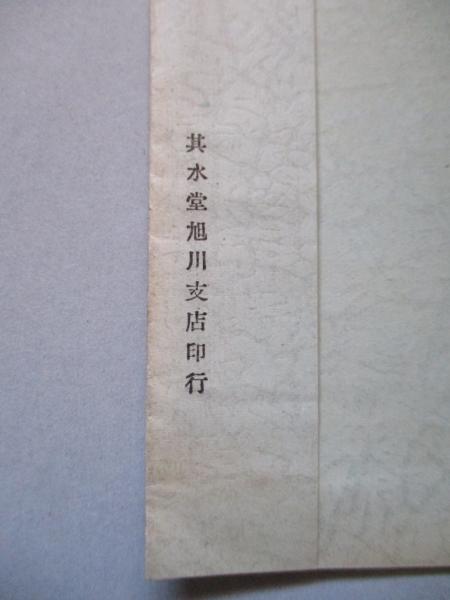 其水堂旭川支店印行